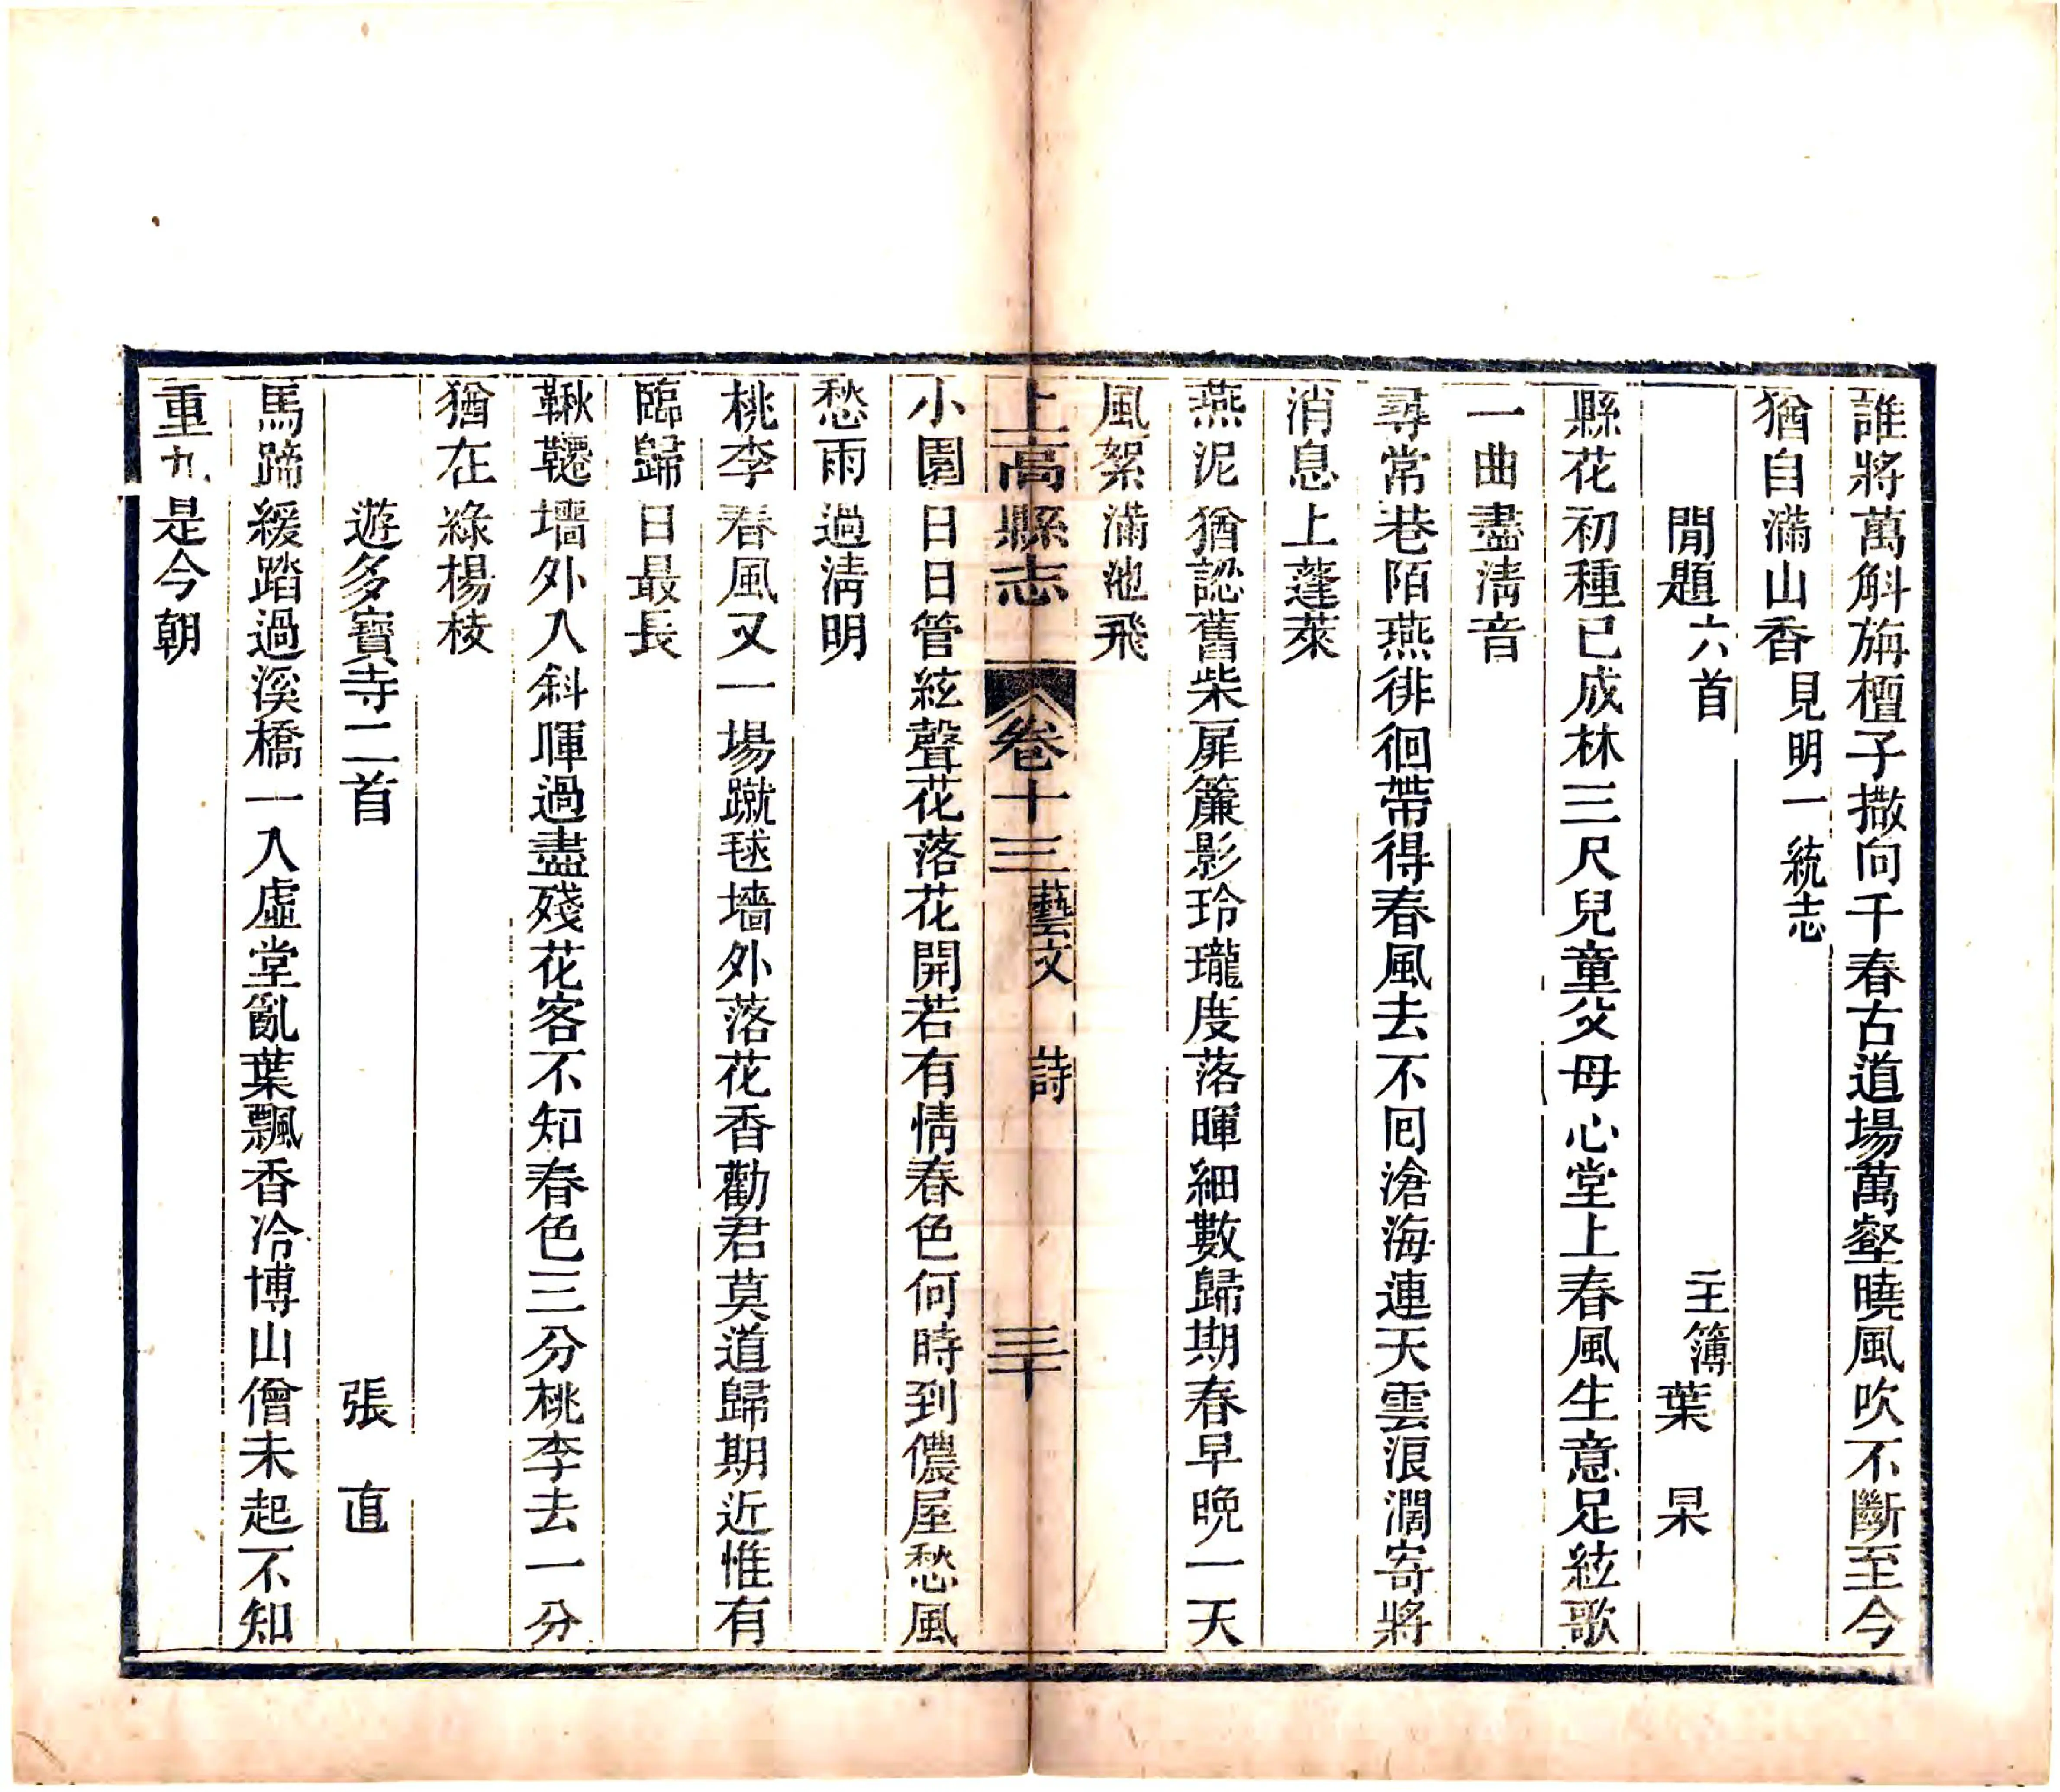 誰將萬斛旃檀子撒向千春古道場萬壑曉風吹不斷至今
猶自滿山香見明一統志
閒題六首 主簿葉杲
縣花初種已成林三尺兒童父母心堂上春風生意足絃歌
一曲盡清音
尋常巷陌燕徘徊帶得春風去不回滄海連天雲浪濶寄將
消息上蓬萊
燕泥猶認舊柴扉簾影玲瓏度落暉細數歸期春早晚一天
風絮滿池飛
上高縣志 卷十三 藝文 詩 三十
小園日日管絃聲花落花開若有情春色何時到儂屋愁風
愁雨過清明
桃李春風又一場蹴毬墻外落花香勸君莫道歸期近惟有
臨歸日最長
鞦韆墻外人斜暉過盡殘花客不知春色三分桃李去一分
猶在綠楊枝
遊多寶寺二首 張直
馬蹄緩踏過溪橋一入虛堂亂葉飄香冷博山僧未起不知
重九是今朝